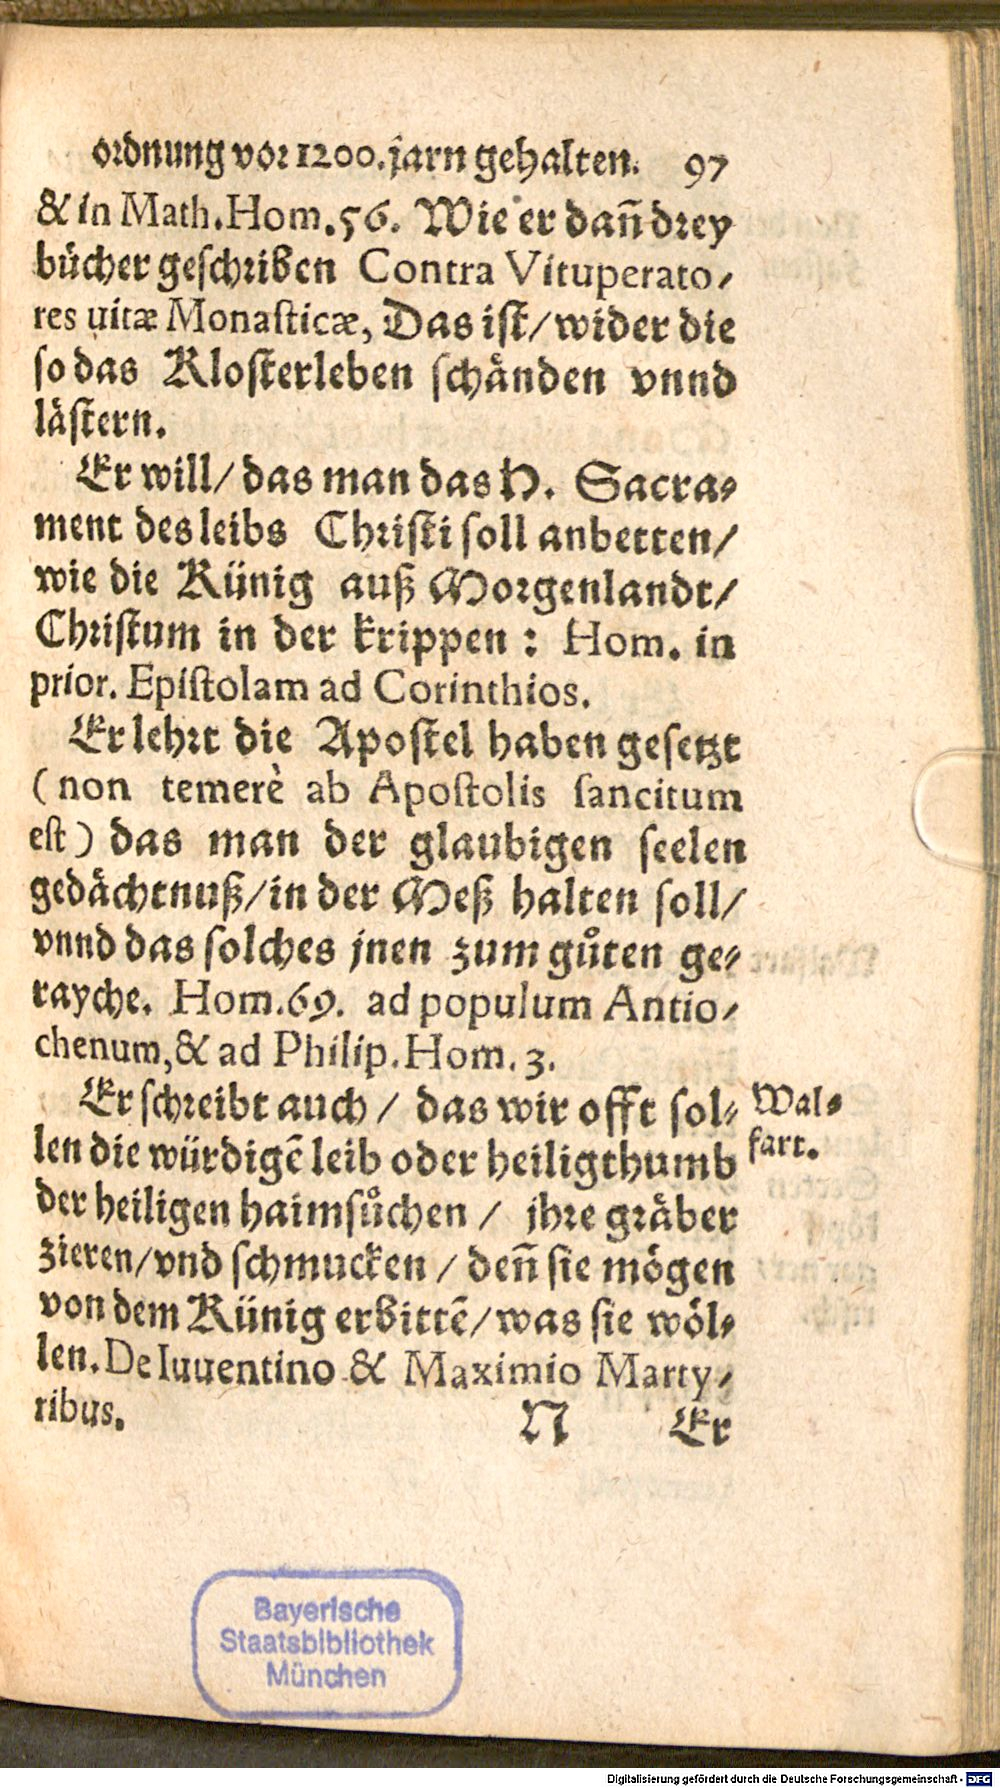 ordnung vor 1200. jarn gehalten. 97
& in Math. Hom. 56. Wie er dañ drey
bücher geschriben Contra Vituperato-
res uitæ Monasticæ, Das ist/ wider die
so das Klosterleben schänden vnnd
lästern.
Er will/ das man das H. Sacra-
ment des leibs Christi soll anbetten/
wie die Künig auß Morgenlandt/
Christum in der krippen : Hom. in
prior. Epistolam ad Corinthios.
Er lehrt die Apostel haben gesetzt
(non temerè ab Apostolis sancitum
est) das man der glaubigen seelen
gedächtnuß/ in der Meß halten soll/
vnnd das solches jnen zum gůten ge-
rayche. Hom. 69. ad populum Antio-
chenum, & ad Philip. Hom. 3.
Er schreibt auch / das wir offt sol-
len die würdigẽ leib oder heiligthumb
der heiligen haimsůchen / jhre gräber
zieren/ vnd schmucken / deñ sie mögen
von dem Künig erbittẽ/ was sie wöl-
len. De Iuuentino & Maximio Marty-
ribus.
Wal-
fart.
N Er
Bayerische
Staatsbibliothek
München
Digitalisierung gefördert durch die Deutsche Forschungsgemeinschaft - DFG